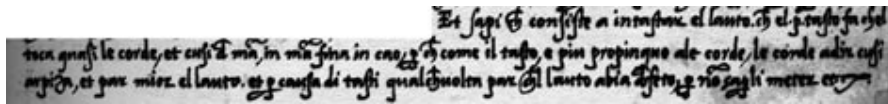 Et sapi ch̃ consiste a intastar el lauto. ch̃ el p.º tasto fa chel
toca quasi le corde, et cusi d̃ mã, in mã fina in cao, ꝑ ch̃ come il tasto, e piu propinquo ale corde, le corde adiz cusi
arpiza, et par mior el lauto. et ꝑ causa di tasti qual ch̃ volta par ch̃l lauto abia difeto, ꝑ nõ sapli meter